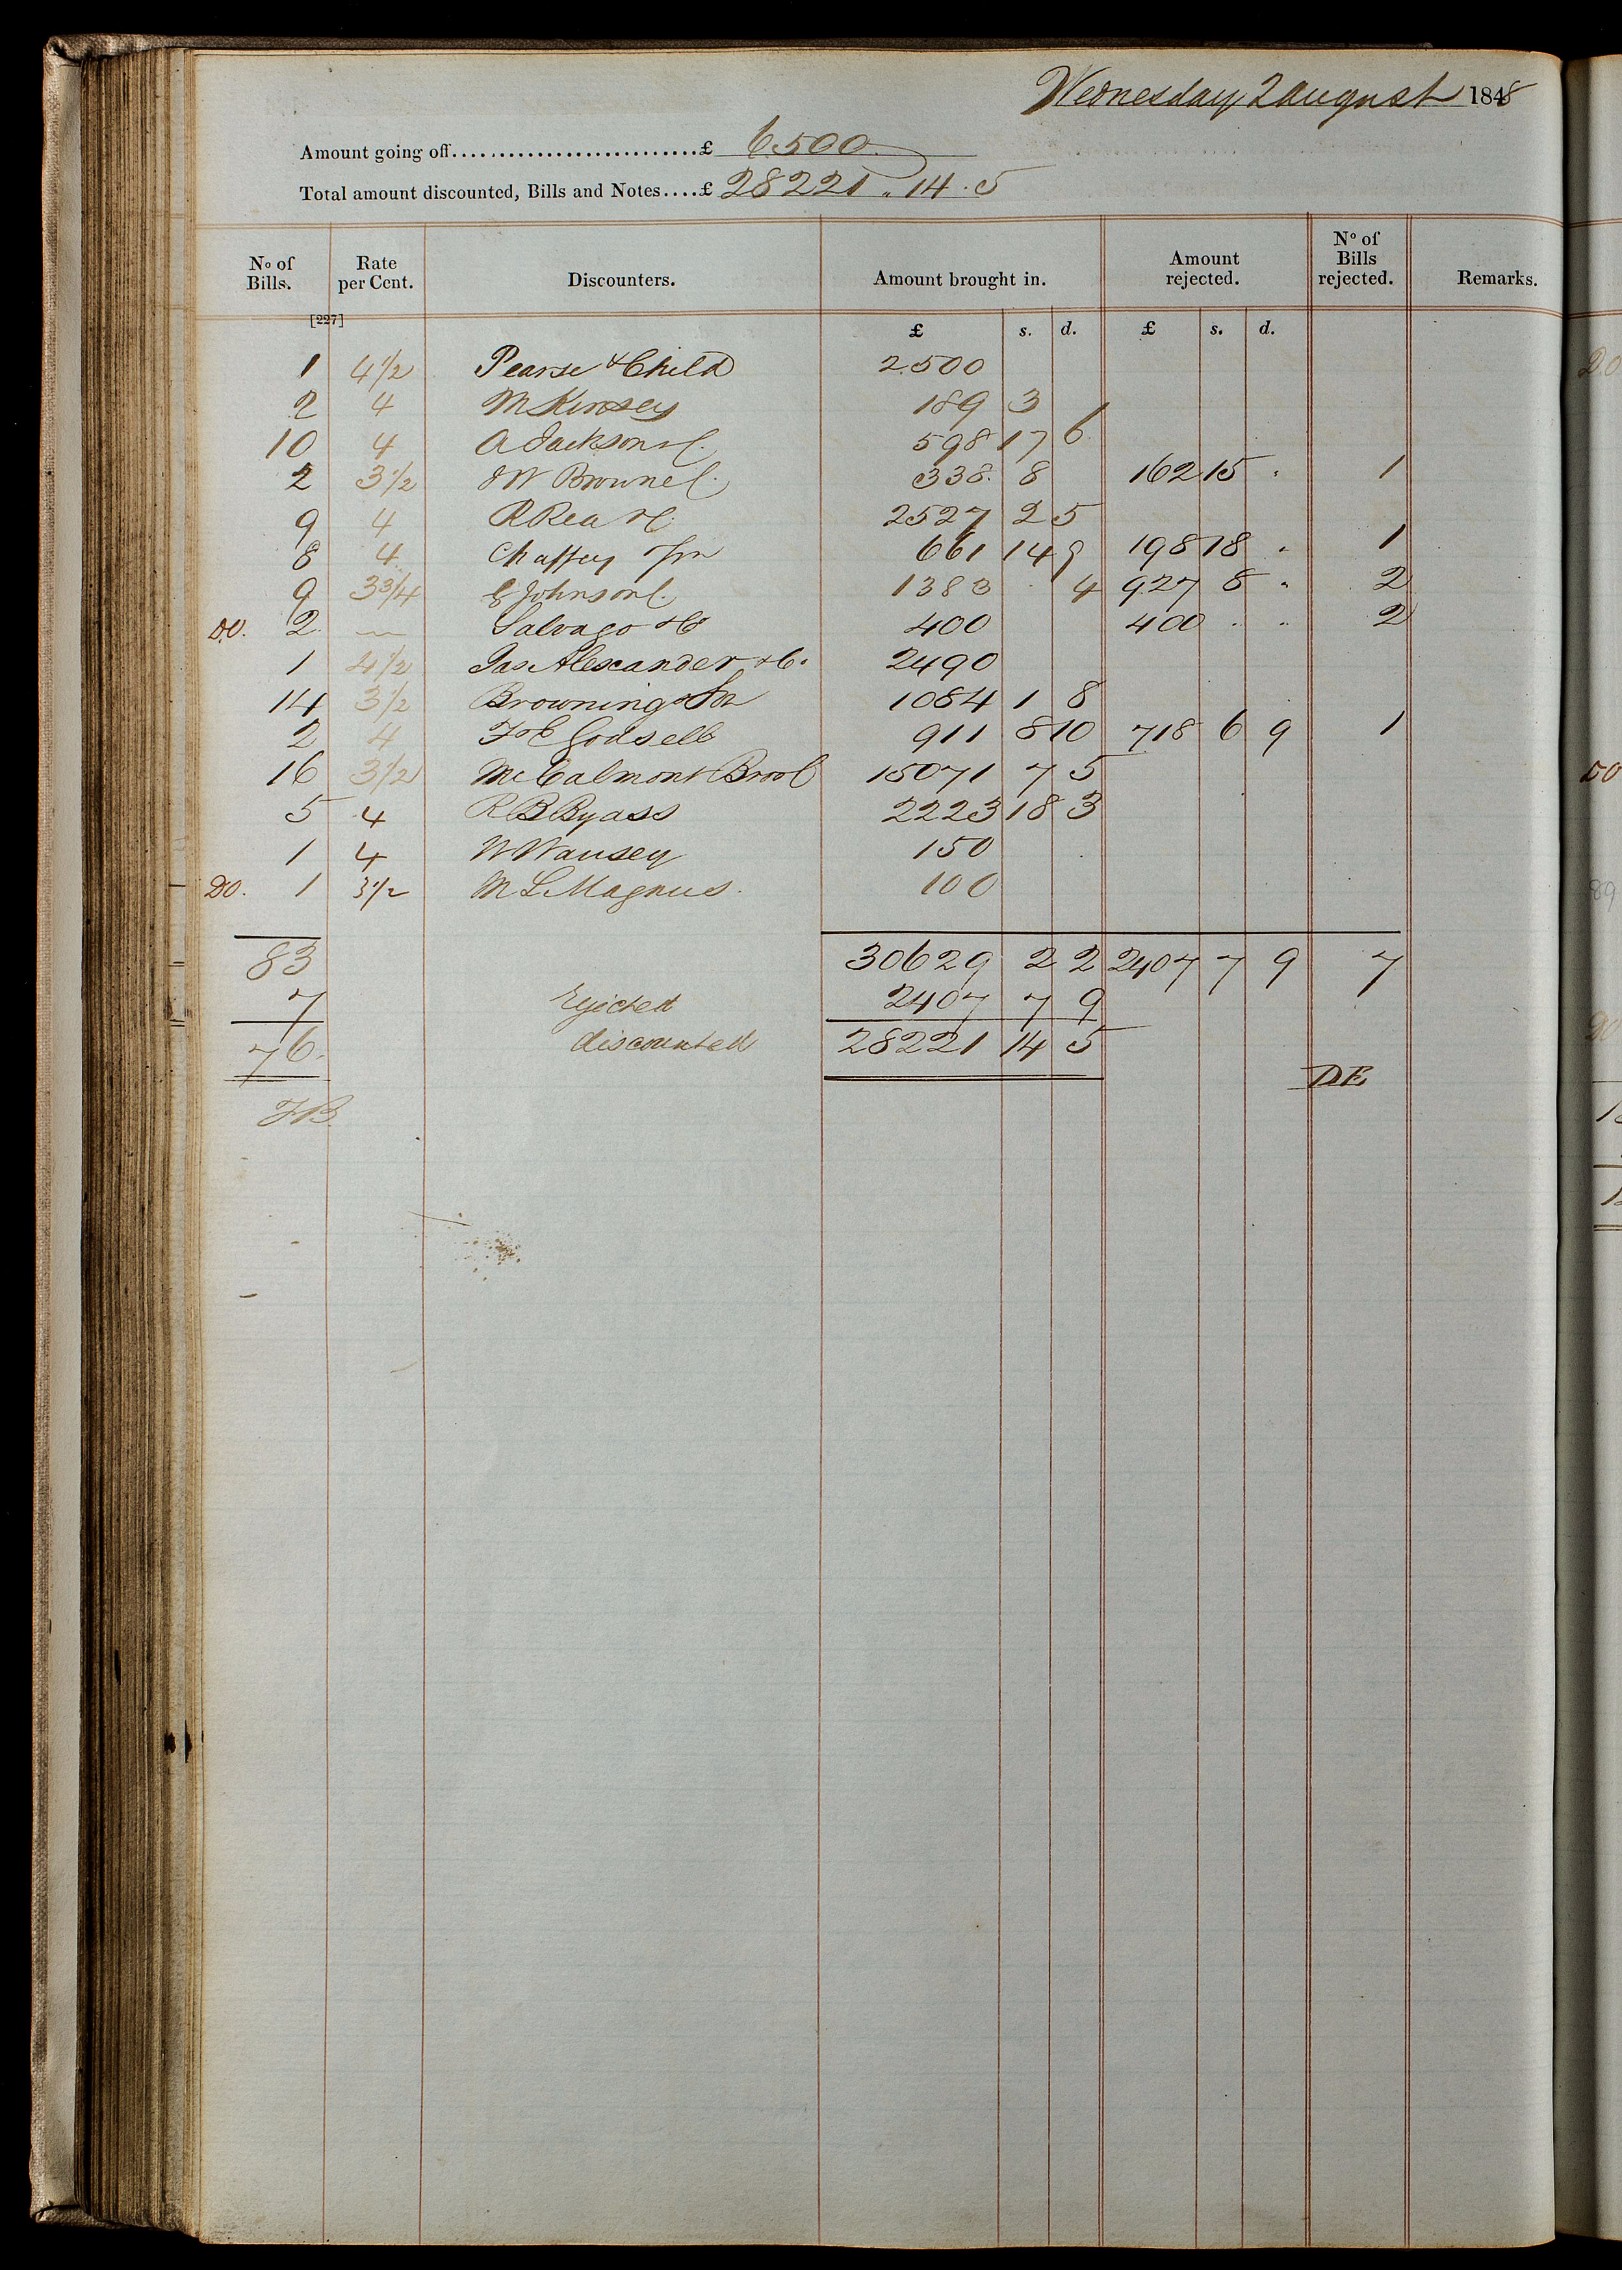 Wednesday 2 August 1848
Amount going off..........................£ 6500
Total amount discounted, Bills and Notes....£ 28221 . 14 . 5
No of Bills. Rate per Cent. Discounters. Amount brought in. Amount rejected. No of Bills rejected. Remarks.
[227] £ s. d. £ s. d.
1 4 1/2 Pearse & Child 2500
2 4 M Kinsey 189 3
10 4 A Jackson & C 598 17 6
2 3 1/2 J W Brown & C 338 8 162 15 " 1
9 4 R Rea & C 2527 2 5 
8 4 Chaffey & Son 661 14 9 198 18 " 1
9 3 3/4 E Johnson & C 1383 " 4 927 8 " 2
DO. 2 — Salvago & Co 400 400 " " 2
1 4 1/2 Jas Alexander & Co 2490
14 3 1/2 Browning & Son 1084 1 8
2 4 F & E Godsell 911 8 10 718 6 9 1
16 3 1/2 McCalmont Bros & C 15071 7 5
5 4 R B Byass 2223 18 3
1 4 W Wansey 150
DO. 1 3 1/2 M L Magnus 100
83 30629 2 2 2407 7 9 7
7 Rejected 2407 7 9
76 discounted 28221 14 5
DE
FB